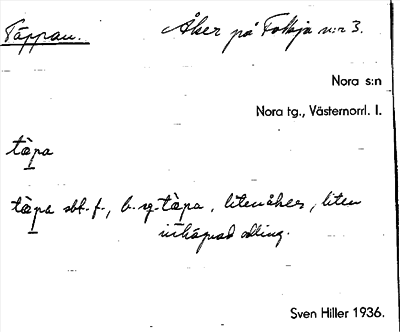 Täppan. Åker på Folkja n:r 3.
Nora s:n
Nora tg., Västernorrl. l.
tæ̀pa
tæ̀pa sbt. f., b. sg. tæ̀pa, liten åker, liten
inhägnad odling.
Sven Hiller 1936.